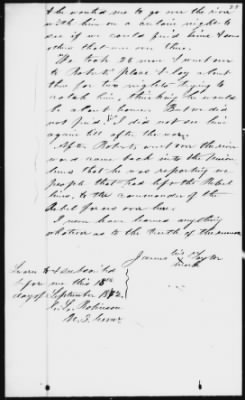 & he wanted me to go over the river
with him on a certain night to
see if we could find some &
others that was over there.
We took 25 men & went over
to Roberts' place & lay about
there for two nights trying to
catch him, thinking he would
be about home. But we did
not find. & I did not see him
again till after the war.
After Roberts went over the river
word came back into the Union
lines that he was reporting on
people that had left the Rebel
lines, to the commander of the
Rebel forces over there.
I never have learned anything
whatever as to the truth of the rumor
James his Taylor
mark
Sworn to & subscribed
for me this 18th
day of September 1872.
Robinson